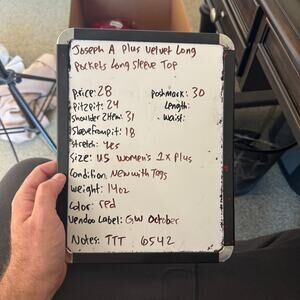 Joseph A Plus Velvet Long
Pockets Long Sleeve Top
Price: 28
Poshmark: 30
Pit2pit: 24
Length:
Shoulder 2 Hem: 31
Waist:
Sleevefrompit: 18
Stretch: Yes
Size: US Women's 1x Plus
Condition: New with Tags
Weight: 14oz
Color: red
Vendoo Label: GW October
Notes: TTT 6542